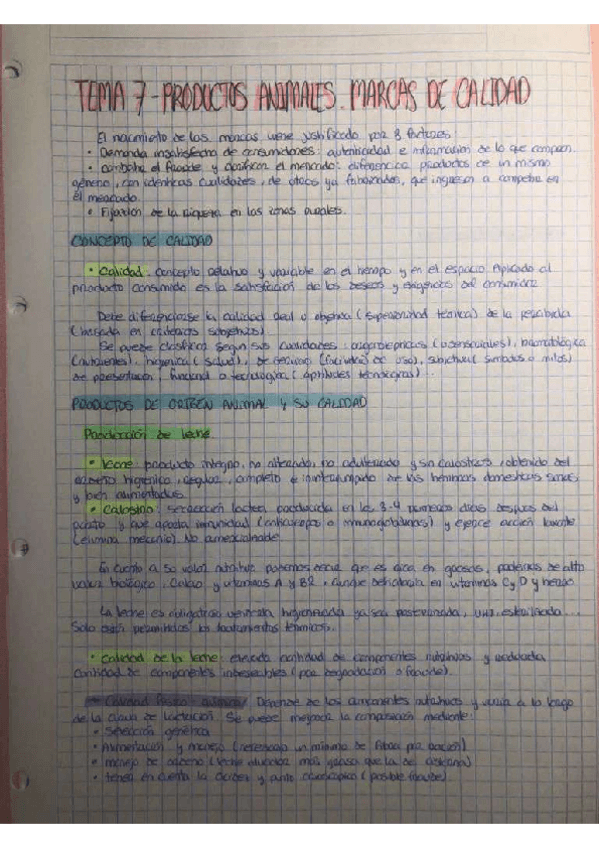 TEMA 7 - PRODUCTOS ANIMALES. MARCAS DE CALIDAD
El nacimiento de las marcas viene justificado por 3 factores:
• Demanda insatisfecha de consumidores: autenticidad e información de lo que compran.
• Combatir el fraude y clasificar el mercado: diferencia productos de un mismo
género, con idénticas cualidades, de otros ya fabricados, que ingresan a competir en
el mercado.
• Fijación de la riqueza en las zonas rurales.
CONCEPTO DE CALIDAD
• Calidad: concepto relativo y variable en el tiempo y en el espacio. Aplicado al
producto consumido es la satisfacción de los deseos y exigencias del consumidor.
Debe diferenciarse la calidad real u objetiva (superioridad técnica) de la percibida
(basada en criterios subjetivos).
Se puede clasificar según sus cualidades: organolépticas (o sensoriales), bromatológica
(nutrientes), higiénica (salud), de servicio (facilidad de uso), subjetiva (símbolos o mitos)
de presentación, funcional o tecnológica (aptitudes tecnológicas)...
PRODUCTOS DE ORIGEN ANIMAL Y SU CALIDAD
Producción de leche
• Leche: producto íntegro, no alterado, no adulterado y sin calostros, obtenido del
ordeño higiénico, regular, completo e ininterrumpido de las hembras domésticas sanas
y bien alimentadas.
• Calostro: secreción láctea producida en los 3-4 primeros días después del
parto y que aporta inmunidad (anticuerpos o inmunoglobulinas) y ejerce acción laxante
(elimina meconio). No comercializable
En cuanto a su valor nutritivo podemos decir que es rica en grasas, proteínas de alto
valor biológico, calcio y vitaminas A y B2, aunque deficitaria en vitaminas C y D y hierro.
La leche es obligatorio venderla higienizada ya sea pasteurizada, UHT, esterilizada...
Solo están permitidos los tratamientos térmicos.
• Calidad de la leche: elevada cantidad de componentes nutritivos y reducida
cantidad de componentes indeseables (por degradación o fraude).
- Calidad físico-química: Depende de los componentes nutritivos y varía a lo largo
de la curva de lactación. Se puede mejorar la composición mediante:
• Selección genética
• Alimentación y manejo (necesario un mínimo de fibra por ración)
• manejo de ordeño (leche alveolar más grasa que la de cisterna)
• tener en cuenta la acidez y punto crioscópico (posible fraude)